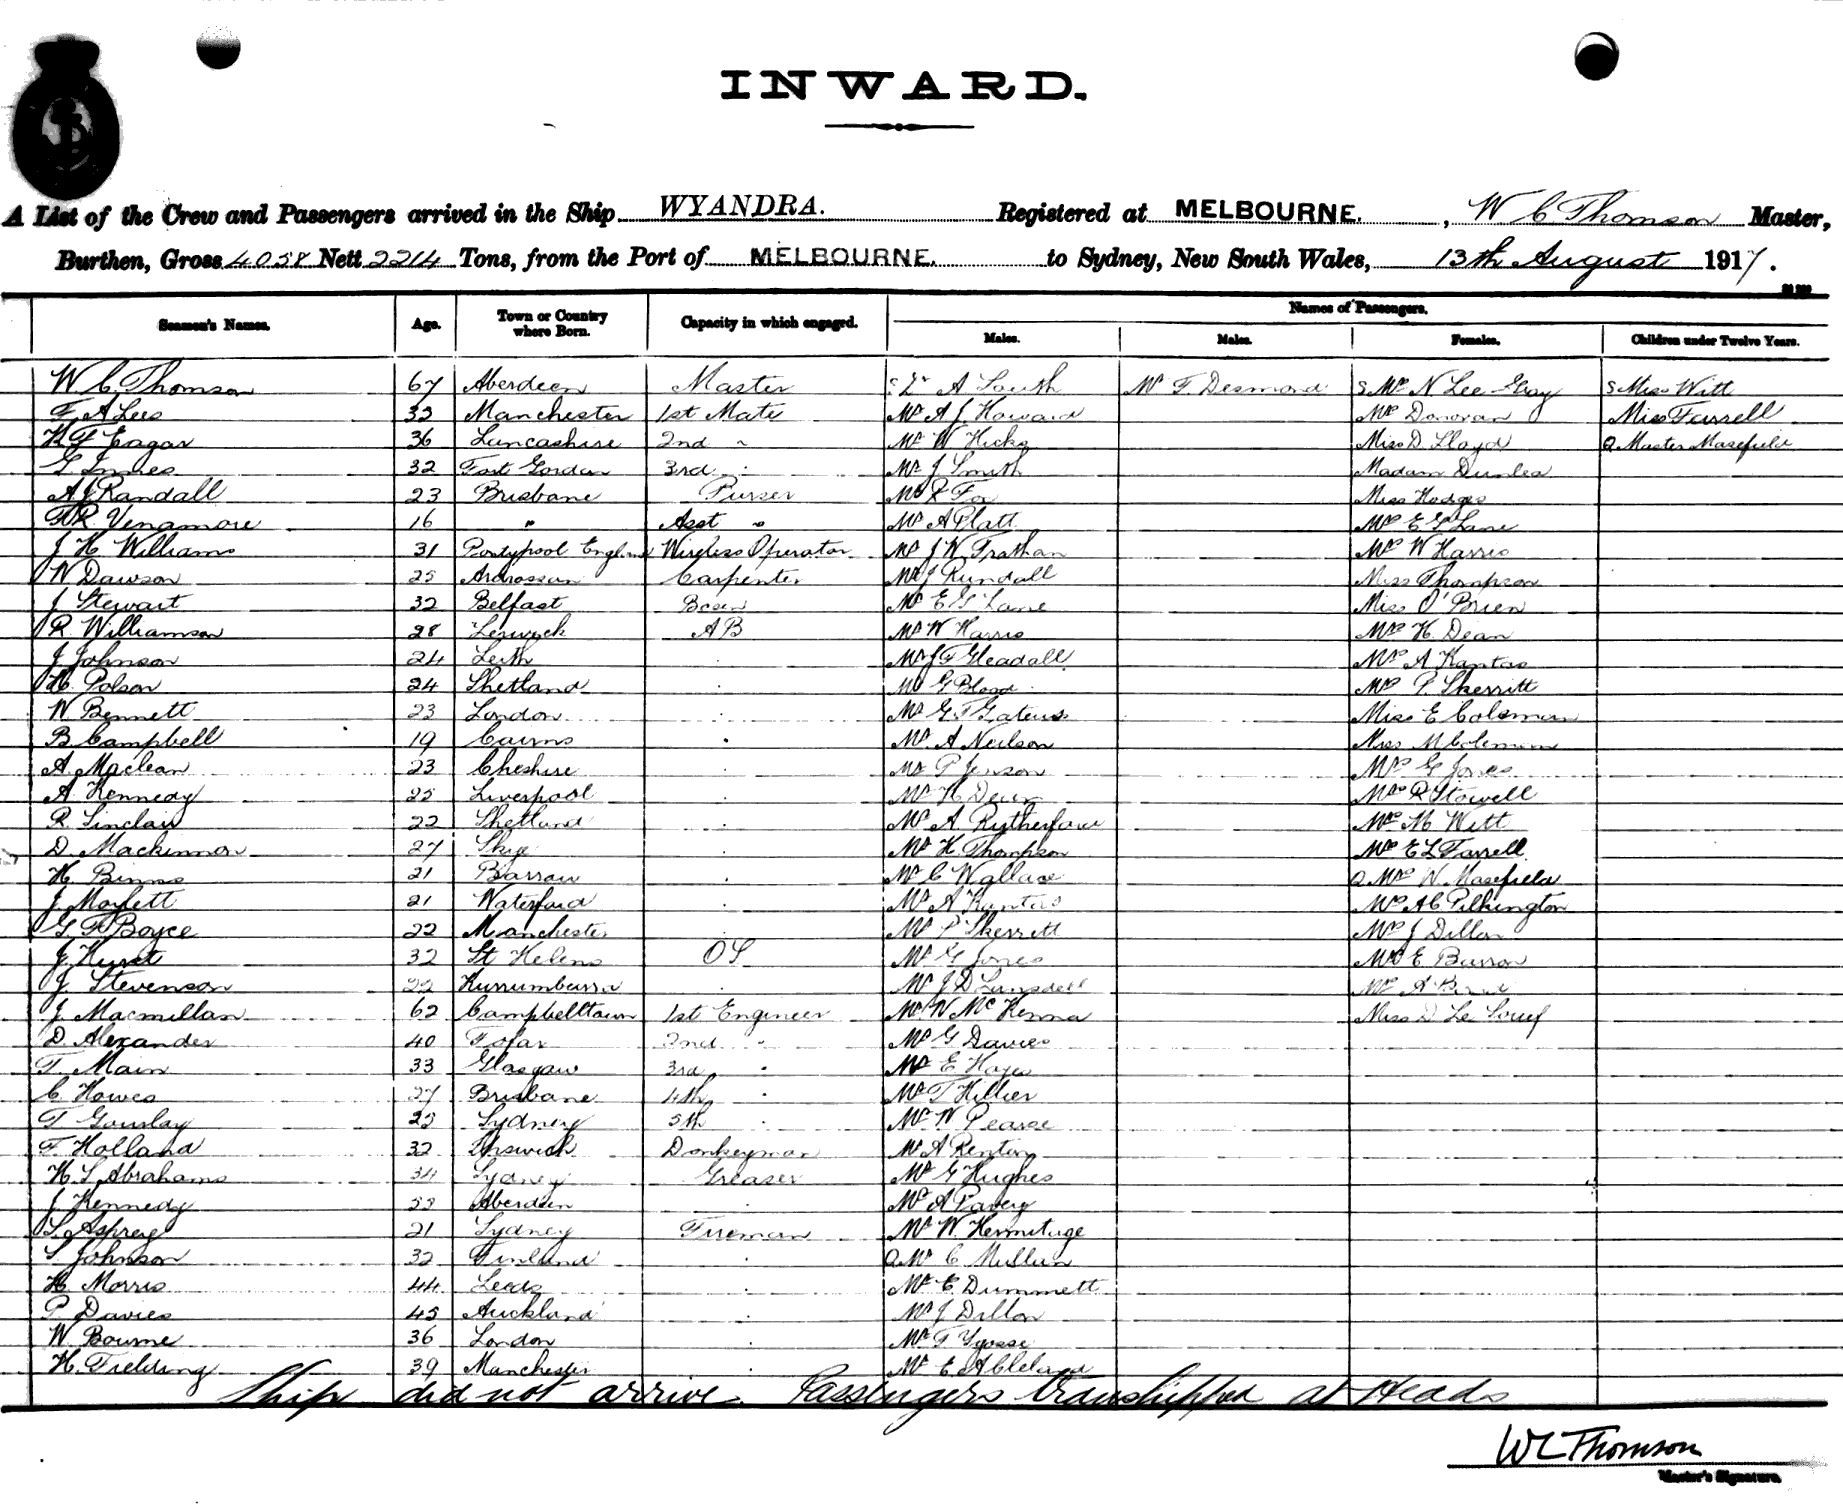 INWARD.
A List of the Crew and Passengers arrived in the Ship WYANDRA. Registered at MELBOURNE. , W C Thomson Master,
Burthen, Gross 4058 Nett 2214 Tons, from the Port of MELBOURNE. to Sydney, New South Wales, 13th August 1917.
Names of Passengers.
Seamen's Names. Age. Town or Country where Born. Capacity in which engaged. Males. Males. Females. Children under Twelve Years.
W C Thomson 67 Aberdeen Master A South Mr F. Desmond S Mrs N Lee Gray S Miss Witt
F A Lees 33 Manchester 1st Mate Mr A J Howard Mrs Donovan Miss Farrell
H F Eagar 36 Lancashire 2nd " Mr W Hicks Miss D Lloyd Q Master Masefield
G Innes 32 Fort Gordon 3rd " Mr J Smith Madam Dunlea
A J Randall 23 Brisbane Purser Mr R Fox Miss Hodges
Venamore 16 " Asst " Mr A Platt Mrs E G Lane
J H Williams 31 Pontypool England Wireless Operator Mr J W Trathan Mrs W Harris
W Dawson 25 Ardrossan Carpenter Mr J Rundall Miss Thompson
J Stewart 32 Belfast Bosun Mr E G Lane Miss O'Brien
R Williamson 28 Lerwick AB Mr W Harris Mrs H Dean
J Johnson 24 Leith " Mr J F Gleadall Mrs A Kantas
H. Polson 24 Shetland " Mr G Blood Mrs P Skerritt
W Bennett 23 London " Mr G F Gateus Miss E Coleman
B Campbell 19 Cairns " Mr A Neilson Miss M Coleman
A Maclean 23 Cheshire " Mr P Jenson Mrs G Jones
A Kennedy 25 Liverpool " Mr H Dean Mrs R Stowell
R Sinclair 22 Shetland " Mr A Rutherfurd Mrs M Witt
D Mackinnon 27 Skye " Mr H Thompson Mrs E L Farrell
H Binns 21 Barrow " Mr C Wallace Q Mrs W Masefield
J Moylett 21 Waterford " Mr A Kantas Mrs A C Pilkington
G F Boyce 22 Manchester " Mr P Skerritt Mrs J Dillon
J Hurst 32 St Helens OS Mr G Jones Mrs E Barron
J Stevenson 22 Kurrumburra " Mr J D Lansdell Mrs A
J Macmillan 62 Campbelltown 1st Engineer Mr W McKenna Miss D Le Souef
D Alexander 40 Fofar 2nd " Mr G Davies
T. Main 33 Glasgow 3rd " Mr E Hayes
C Howes 27 Brisbane 4th " Mr T Hillier
T Gourlay 25 Sydney 5th " Mr W Pearse
F Holland 32 Ipswich Donkeyman Mr A Renton
H. S. Abrahams 34 Sydney Greaser Mr G Hughes
J Kennedy 53 Aberdeen " Mr A Pavey
S. Asprey 21 Sydney Fireman Mr W. Hermitage
S Johnson 32 Finland " Q Mr C Mullan
H Morris 44 Leeds " Mr E. Dummett
P Davies 45 Auckland " Mr J Dillon
W Bourne 36 London " Mr F
H. Fielding 39 Manchester " Mr E A Cleland
Ship did not arrive. Passengers transhipped at Heads
WC Thomson
Master's Signature.